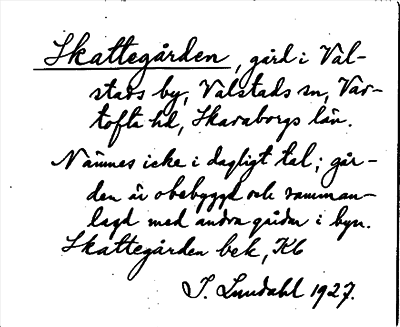 Skattegården, gård i Val-
stads by, Valstads sn, Var-
tofta hd, Skaraborgs län.
Nämnes icke i dagligt tal; går-
den är obebyggd och samman-
lagd med andra gårdar i byn.
Skattegården bek, Kb
I. Lundahl 1927.